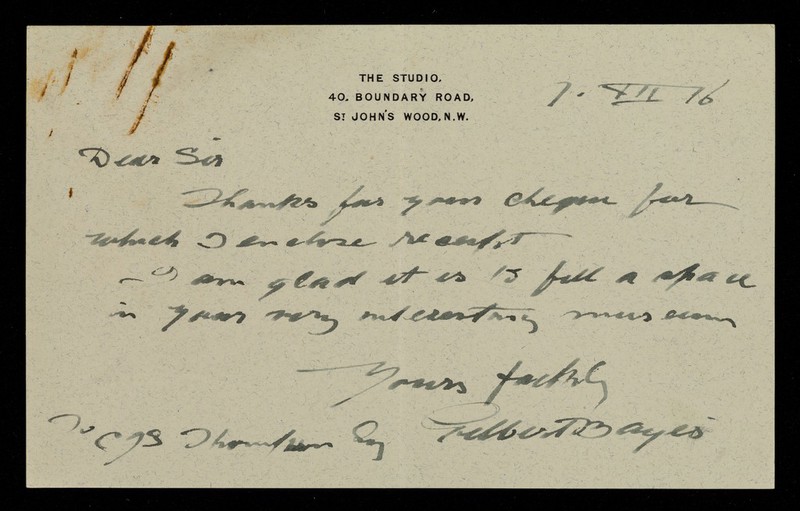 THE STUDIO,
40, BOUNDARY ROAD,
ST JOHN'S WOOD, N.W.
7. XII 16
Dear Sir
Thanks for your cheque for
which I enclose receipt
– I am glad it is to fill a space
in your very interesting museum
Yours fathly
Gilbert Bayes
To CJS Thompson Esq